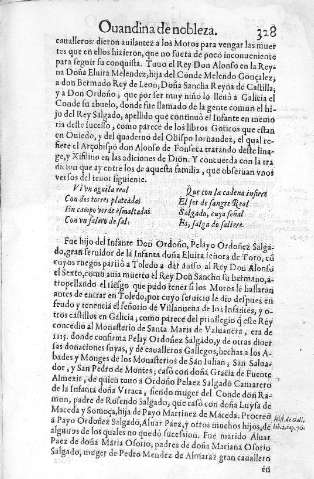 Ouandina de nobleza. 328
caualleros: dieron auilantez a los Moros para vengar las muer
tes que en ellos hizieron, que no fueta de poco inconueniente
para seguir su conquista. Tuuo el Rey Don Alonso en la Rey-
na Doña Eluira Melendez, hija del Conde Melendo Gonçalez,
a don Bermudo Rey de Leon, Doña Sancha Reyna de Castilla,
y a Don Ordoño, que por ser muy niño lo lleuò a Galicia el
Conde su abuelo, donde fue llamado de la gente comun el hi-
jo del Rey Salgado, apellido que continuò el Infante en memo
ria deste sucesso, como parece de los libros Goticos que estan
en Ouiedo, y del quaderno del Obispo, el qual re-
fiere el Arçobispo don Alonso de Fonseca tratando deste lina-
ge, y Xifilino en las adiciones de Dion. Y concuerda con la tra
dicion que ay entre los de aquesta familia, que obseruan vnos
versos del tenor siguiente.
Vi vn aguila real
Con dos torres plateadas
En campo verde esmaltadas
Con vn salero de sal:
Que con la cadena
El ser de sangre Real
Salgado, cuya señal
Es, salgo de saltere.
Fue hijo del Infante Don Ordoño, Pelayo Ordoñez Salga-
do, gran seruidor de la Infanta doña Eluira señora de Toro, cu
yos ruegos partiò a Toledo a dar auiso al Rey Don Alonso
el Sexto, como auia muerto el Rey Don Sancho su hermano, a-
tropellando el riesgo que pudo tener si los Moros le hallaran
antes de entrar en Toledo, por cuyo seruicio le dio despues en
feudo y tenencia el señorio de Villanueua de los Infantes, y o-
tros castillos en Galicia, como parece del priuilegio q̃ este Rey
concediò al Monasterio de Santa Maria de Valuanera, era de
1115. donde confirma Pelay Ordoñez Salgado, y de otras diuer
sas donaciones suyas, y de caualleros Gallegos, hechas a los A-
bades y Monges de los Monasterios de San Iulian, San Salua-
dor, y San Pedro de Montes; casò con doña Gracia de Fuente
Almexir, de quien tuuo a Ordoño Pelaez Salgado Camarero
de la Infanta doña Vrraca, siendo muger del Conde don Ra-
mon, padre de Rosendo Salgado, que casò con doña Luysa de
Maceda y Somoça, hija de Payo Martinez de Maceda. Procreò
a Payo Ordoñez Salgado, Aluar Paez, y otros muchos hijos, de
los quales no quedò sucession. Fue marido Aluar
Paez de doña Maria Osorio, padres de doña Mariana Osorio
Salgado, muger de Pedro Mendez de Almaraz gran cauallero
en